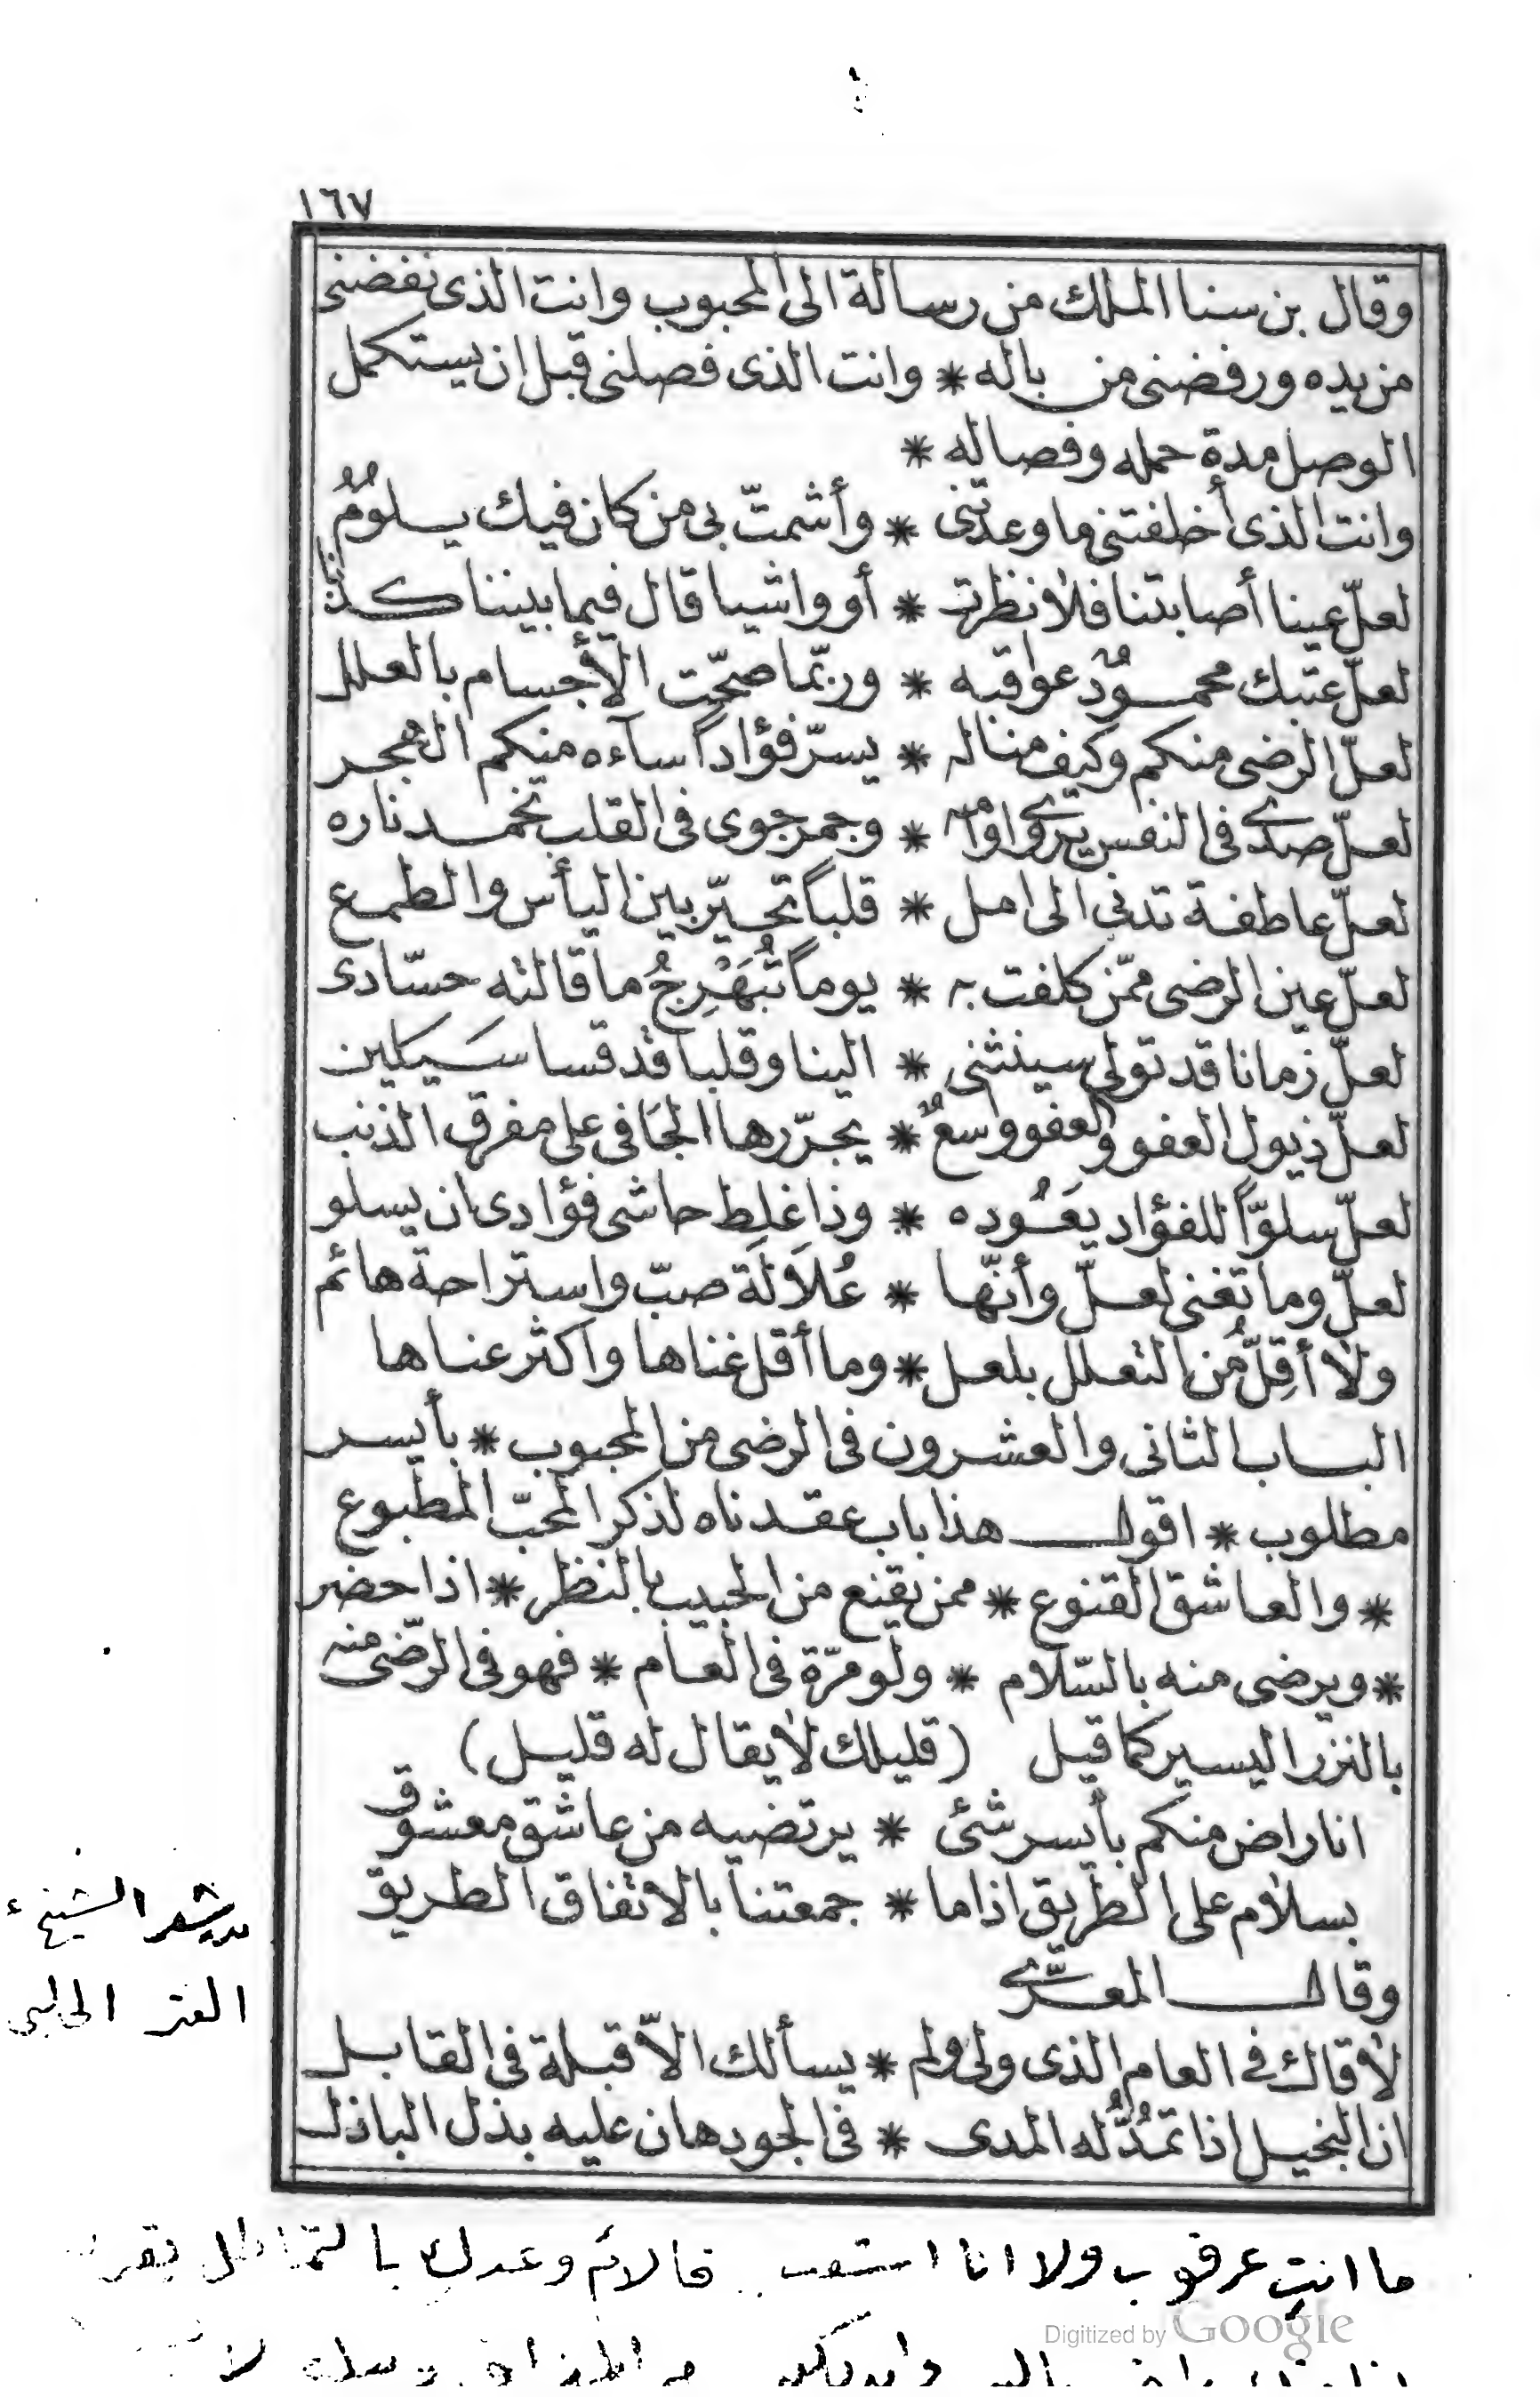 ١٦٧
وقال بن سنا الملك من رسالة الى المحبوب وانت الذى نفضنى
من يده ورفضنى من باله * وانت الذى فصلنى قبل ان يستكمل
الوصل مدة حمله وفصاله *
وانت الذى أخلفتنى ما وعدتنى * وأشمتّ بى من كان فيك يلومُ
لعلّ عينا أصابتنا فلا نظرت * أو واشيا قال فيما بيننا كذبا
لعلّ عتبك محمودٌ عواقبه * وربّما صحّت الأجسام بالعلل
لعلّ الرضى منكم وكيف مناله * يسرّ فؤاداً سآءه منكم الهجر
لعلّ صدى فى النفس يروى اوامه * وجمر جوى فى القلب تخمد ناره
لعلّ عاطفة تدنى الى امل * قلباً تحيّر بين اليأس والطمع
لعلّ عين الرضى ممّن كلفت به * يوماً تُبَهْرِجُ ما قالته حسّادى
لعلّ زمانا قد تولى سينثنى * الينا وقلبا قد قسا سَيلين
لعلّ ذيول العفو والعفو وسعٌ * يجرّرها الجافى على مفرق الذنب
لعلّ سلوّاً للفؤاد يعَُوده * وذا غلط حاشى فؤادى ان يسلو
لعلّ وما تغنى لعلّ وأنّها * عُلاَلَة صبّ واستراحة هائم
ولا أقِلّ من التعلل بلعل * وما أقل غناها واكثر عناها
الباب الثانى والعشرون فى الرضى من المحبوب * بأيسر
مطلوب * اقول هذا باب عقدناه لذكر المحبّ المطبوع
* والعاشق القنوع * ممن يقنع من الحبيب بالنظر * اذا حضر
* ويرضى منه بالسّلام * ولو مرّة فى العام * فهو فى الرّضى منه
بالنزر اليسير كما قيل (قليلك لا يقال له قليل)
انا راض منكم بأيسر شئ * يرتضيه من عاشق معشوق
بسلام على الطريق اذا ما * جمعتنا بالاتفاق الطريق
وقال المعرّى
لاقاك فى العام الذى ولى ولم * يسألك الاّ قبلة فى القابل
ان البخيل اذا تمدُّ له المدى * فى الجود هان عليه بذل الباذل
شعر الشيخ
ما انت عرقوب ولا انا
Digitized by Google